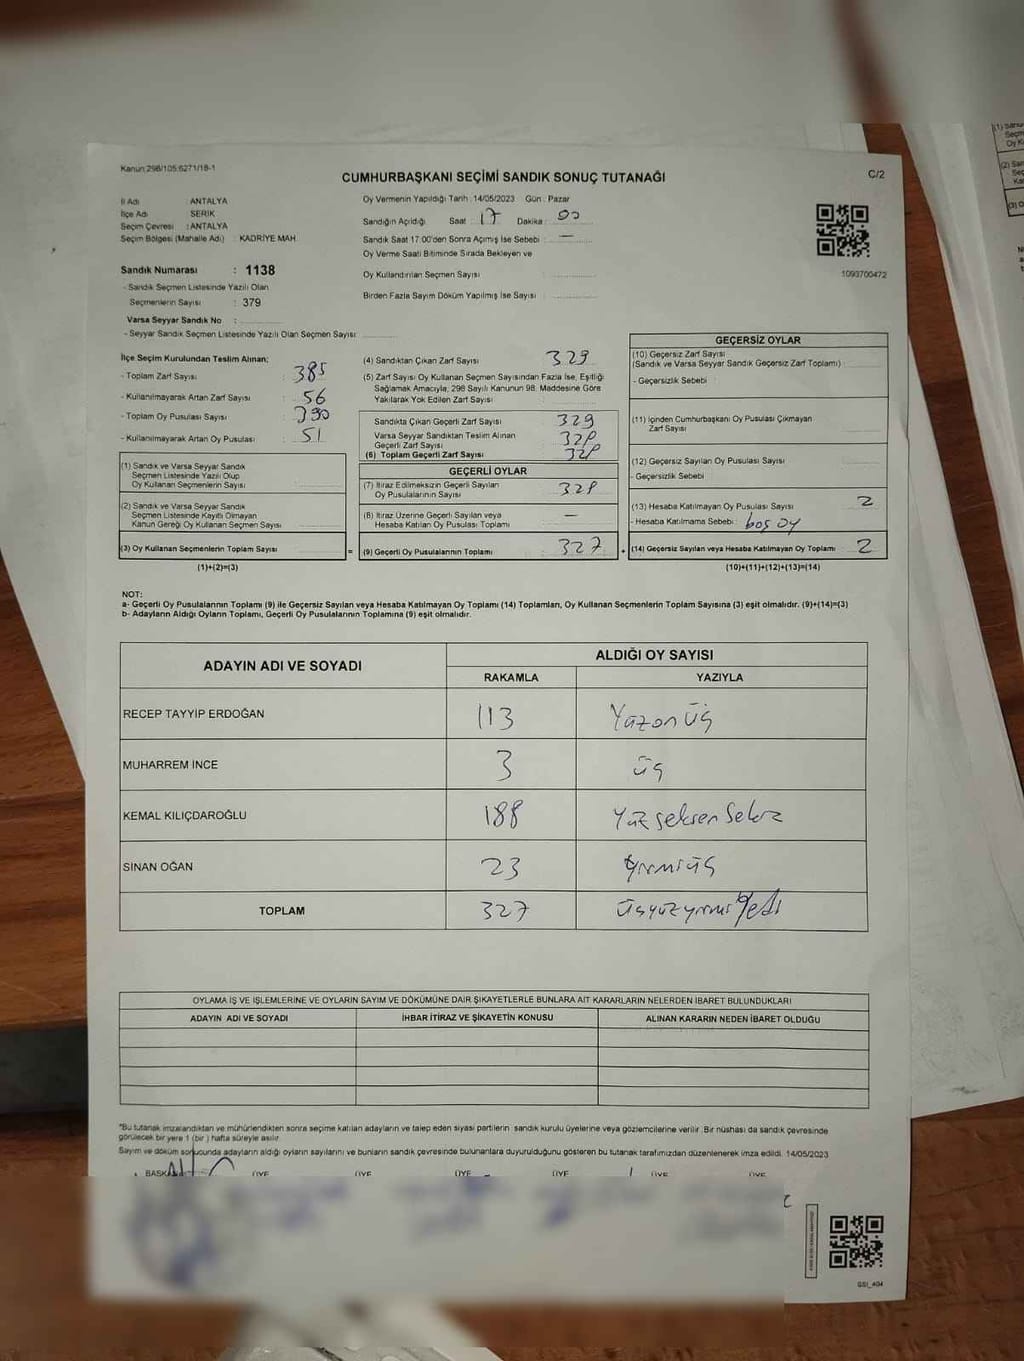 Kanun:298/105;6271/18-1
CUMHURBAŞKANI SEÇİMİ SANDIK SONUÇ TUTANAĞI
C/2
İl Adı : ANTALYA
İlçe Adı : SERİK
Seçim Çevresi : ANTALYA
Seçim Bölgesi (Mahalle Adı) : KADRİYE MAH.
Oy Vermenin Yapıldığı Tarih : 14/05/2023 Gün : Pazar
Sandığın Açıldığı Saat : 17 Dakika : 00
Sandık Saat 17:00'den Sonra Açılmış İse Sebebi : —
Oy Verme Saati Bitiminde Sırada Bekleyen ve
Oy Kullandırılan Seçmen Sayısı :
Birden Fazla Sayım Döküm Yapılmış İse Sayısı :
1093700472
Sandık Numarası : 1138
- Sandık Seçmen Listesinde Yazılı Olan
Seçmenlerin Sayısı : 379
Varsa Seyyar Sandık No :
- Seyyar Sandık Seçmen Listesinde Yazılı Olan Seçmen Sayısı :
İlçe Seçim Kurulundan Teslim Alınan;
- Toplam Zarf Sayısı : 385
- Kullanılmayarak Artan Zarf Sayısı : 56
- Toplam Oy Pusulası Sayısı : 390
- Kullanılmayarak Artan Oy Pusulası : 51
(1) Sandık ve Varsa Seyyar Sandık
Seçmen Listesinde Yazılı Olup
Oy Kullanan Seçmenlerin Sayısı :
(2) Sandık ve Varsa Seyyar Sandık
Seçmen Listesinde Kayıtlı Olmayan
Kanun Gereği Oy Kullanan Seçmen Sayısı :
(3) Oy Kullanan Seçmenlerin Toplam Sayısı :
(1)+(2)=(3)
(4) Sandıktan Çıkan Zarf Sayısı : 329
(5) Zarf Sayısı Oy Kullanan Seçmen Sayısından Fazla İse, Eşitliği
Sağlamak Amacıyla, 298 Sayılı Kanunun 98. Maddesine Göre
Yakılarak Yok Edilen Zarf Sayısı :
Sandıkta Çıkan Geçerli Zarf Sayısı : 329
Varsa Seyyar Sandıktan Teslim Alınan
Geçerli Zarf Sayısı :
(6) Toplam Geçerli Zarf Sayısı :
GEÇERLİ OYLAR
(7) İtiraz Edilmeksizin Geçerli Sayılan
Oy Pusulalarının Sayısı :
(8) İtiraz Üzerine Geçerli Sayılan veya
Hesaba Katılan Oy Pusulası Toplamı : —
= (9) Geçerli Oy Pusulalarının Toplamı : 327
GEÇERSİZ OYLAR
(10) Geçersiz Zarf Sayısı
(Sandık ve Varsa Seyyar Sandık Geçersiz Zarf Toplamı) :
- Geçersizlik Sebebi :
(11) İçinden Cumhurbaşkanı Oy Pusulası Çıkmayan
Zarf Sayısı :
(12) Geçersiz Sayılan Oy Pusulası Sayısı :
- Geçersizlik Sebebi :
(13) Hesaba Katılmayan Oy Pusulası Sayısı : 2
- Hesaba Katılmama Sebebi : boş oy
+ (14) Geçersiz Sayılan veya Hesaba Katılmayan Oy Toplamı : 2
(10)+(11)+(12)+(13)=(14)
NOT:
a- Geçerli Oy Pusulalarının Toplamı (9) ile Geçersiz Sayılan veya Hesaba Katılmayan Oy Toplamı (14) Toplamları, Oy Kullanan Seçmenlerin Toplam Sayısına (3) eşit olmalıdır. (9)+(14)=(3)
b- Adayların Aldığı Oyların Toplamı, Geçerli Oy Pusulalarının Toplamına (9) eşit olmalıdır.
ADAYIN ADI VE SOYADI ALDIĞI OY SAYISI
RAKAMLA YAZIYLA
RECEP TAYYİP ERDOĞAN 113 Yüzonüç
MUHARREM İNCE 3 üç
KEMAL KILIÇDAROĞLU 188 Yüzseksensekiz
SİNAN OĞAN 23 yirmiüç
TOPLAM 327 üçyüzyirmiyedi
OYLAMA İŞ VE İŞLEMLERİNE VE OYLARIN SAYIM VE DÖKÜMÜNE DAİR ŞİKAYETLERLE BUNLARA AİT KARARLARIN NELERDEN İBARET BULUNDUKLARI
ADAYIN ADI VE SOYADI İHBAR İTİRAZ VE ŞİKAYETİN KONUSU ALINAN KARARIN NEDEN İBARET OLDUĞU
"Bu tutanak imzalandıktan ve mühürlendikten sonra seçime katılan adayların ve talep eden siyasi partilerin sandık kurulu üyelerine veya gözlemcilerine verilir. Bir nüshası da sandık çevresinde
görülecek bir yere 1 (bir) hafta süreyle asılır.
Sayım ve döküm sonucunda adayların aldığı oyların sayılarını ve bunların sandık çevresinde bulunanlara duyurulduğunu gösteren bu tutanak tarafımızdan düzenlenerek imza edildi. 14/05/2023
ÜYE ÜYE ÜYE ÜYE ÜYE ÜYE
GSI_404